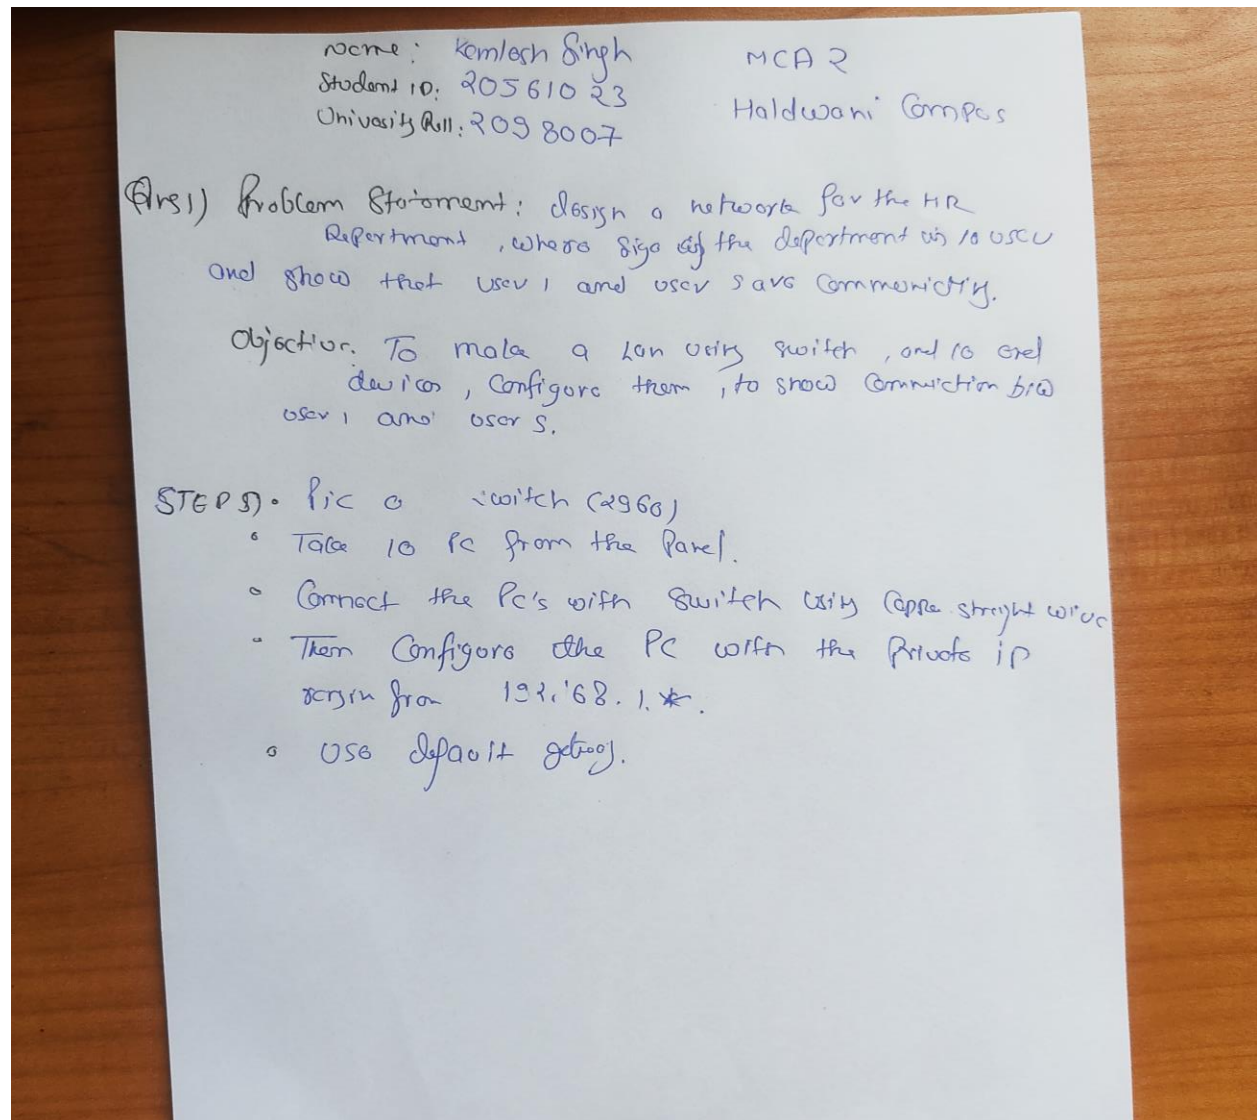 Name: Kamlesh Singh MCA 2
Student ID: 20561023 Haldwani Campus
University Roll: 2098007
Ans1) Problem Statement: design a network for the HR
Department, where size of the department is 10 user
and show that user 1 and user 5 are communicating.
Objective. To make a Lan using switch, and 10 end
devices, Configure them, to show Communication b/w
user 1 and user 5.
STEPS). Pic a switch (2960)
Take 10 Pc from the Panel.
Connect the Pc's with Switch using Copper straight wire
Then Configure the PC with the Private ip
from 192.168.1.*.
Use default gateway.